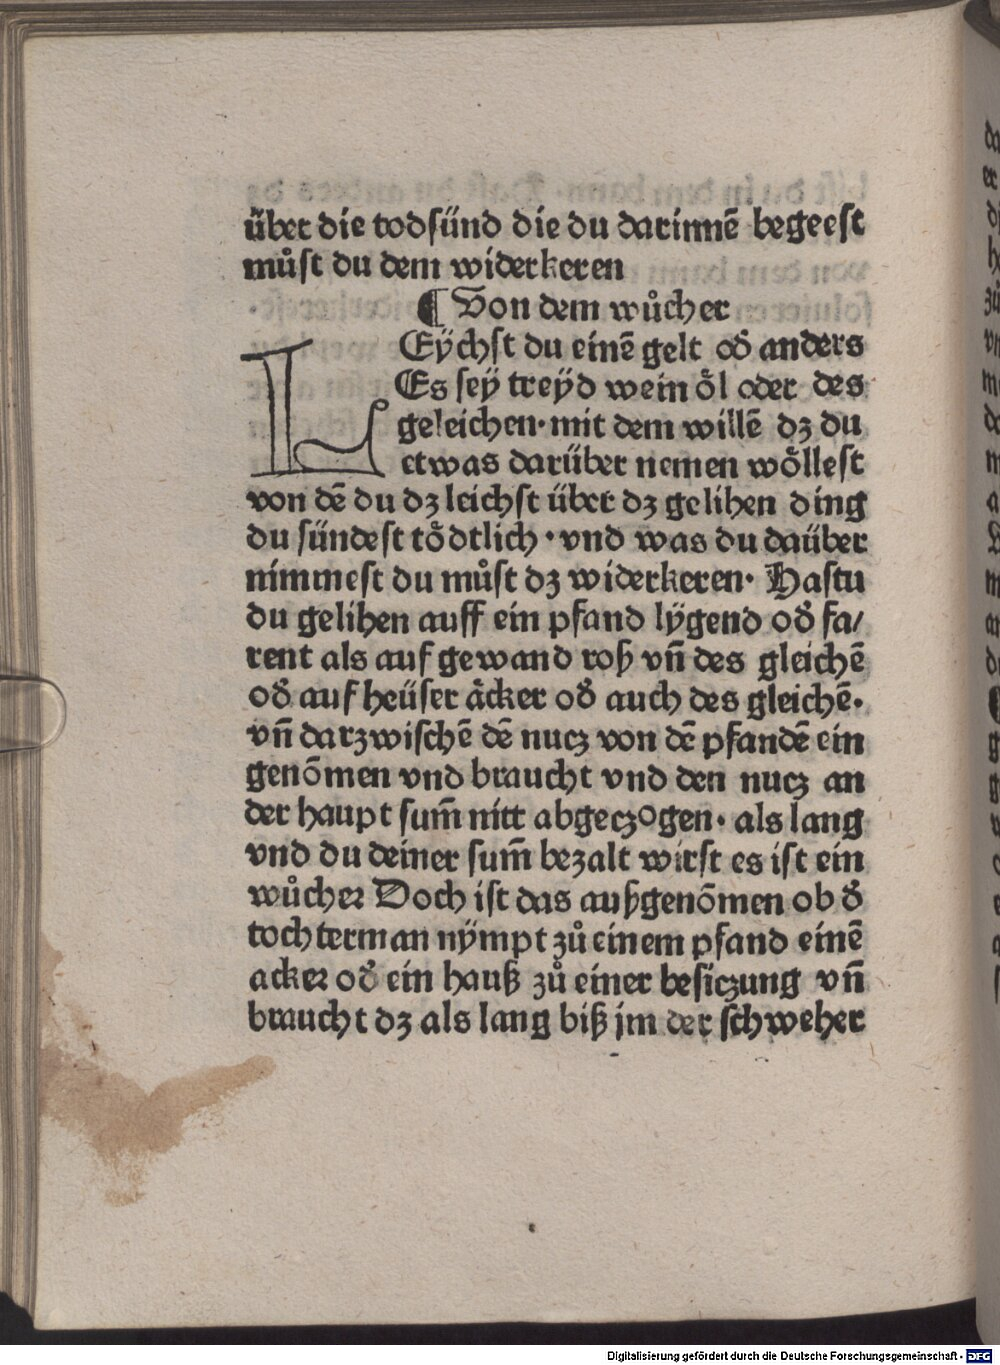 über die todsünd die du darinnē begeest
můst du dem widerkeren
¶ Von dem wůcher
LEÿchst du einē gelt od̕ anders
Es seÿ treÿd wein ȯ̈l oder des
geleichen· mit dem willē dꝫ du
etwas darüber nemen wöllest
von dē du dꝫ leichst über dꝫ gelihen ding
du sündest tödtlich · vnd was du daüber
nimmest du můst dꝫ widerkeren· Hastu
du gelihen auff ein pfand lÿgend od̕ fa/
rent als auf gewand roß vn̄ des gleichē
od̕ auf heüser äcker od̕ auch des gleichē·
vn̄ darzwischē dē nucz von dē pfandē ein
genōmen vnd braucht vnd den nucz an
der haupt sum̄ nitt abgeczogen· als lang
vnd du deiner sum̄ bezalt wirst es ist ein
wůcher Doch ist das außgenōmen ob d̕
tochterman nÿmpt zů einem pfand einē
acker od̕ ein hauß zů einer besiczung vn̄
braucht dꝫ als lang biß jm der schweher
Digitalisierung gefördert durch die Deutsche Forschungsgemeinschaft - DFG